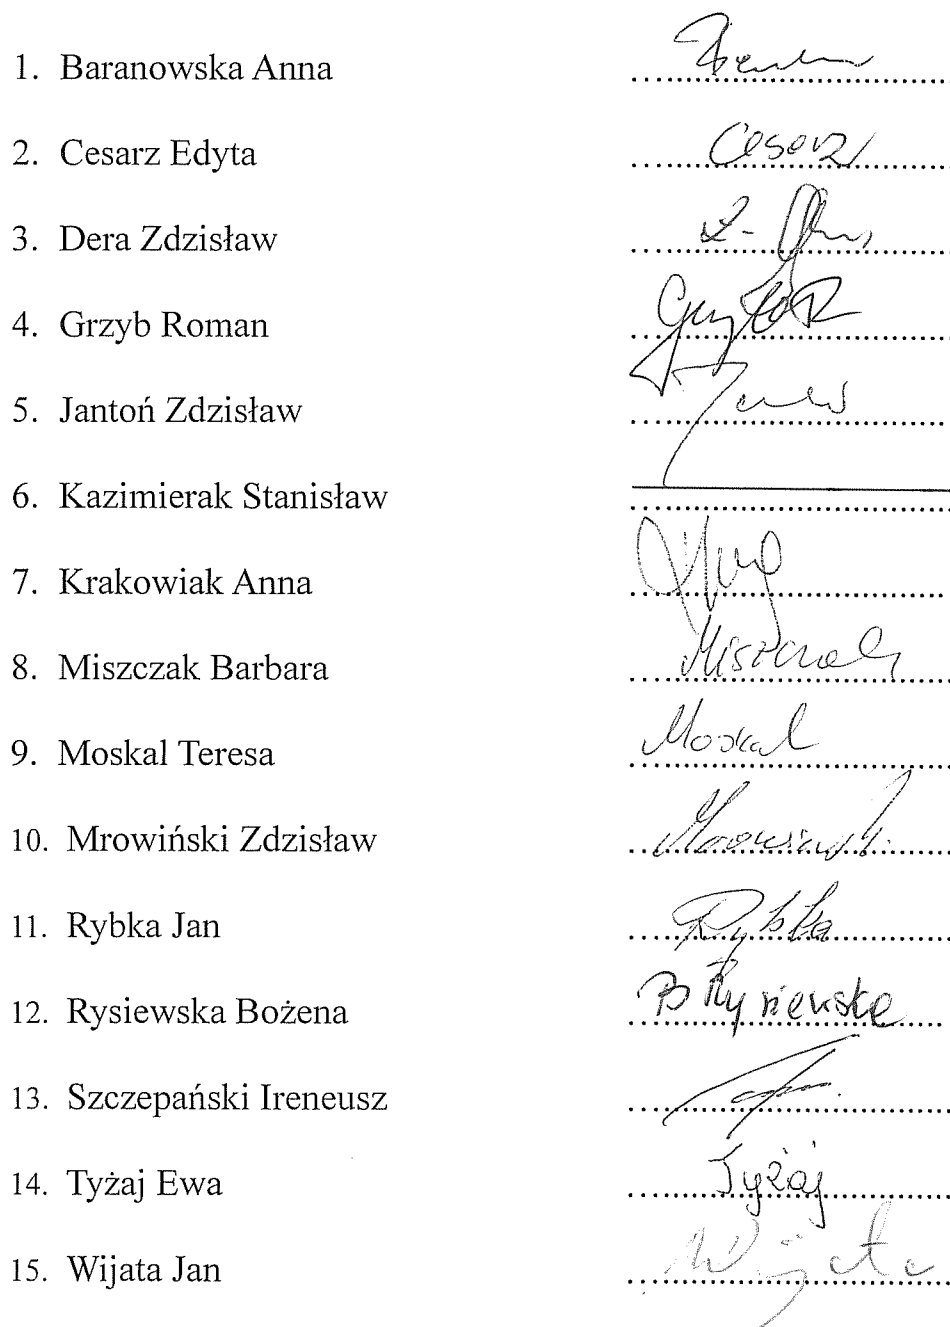 1. Baranowska Anna
2. Cesarz Edyta Cesarz
3. Dera Zdzisław Z.
4. Grzyb Roman
5. Jantoń Zdzisław
6. Kazimierak Stanisław
7. Krakowiak Anna
8. Miszczak Barbara Miszczak
9. Moskal Teresa Moskal
10. Mrowiński Zdzisław
11. Rybka Jan Rybka
12. Rysiewska Bożena B Rysiewska
13. Szczepański Ireneusz
14. Tyżaj Ewa Tyżaj
15. Wijata Jan Wijata